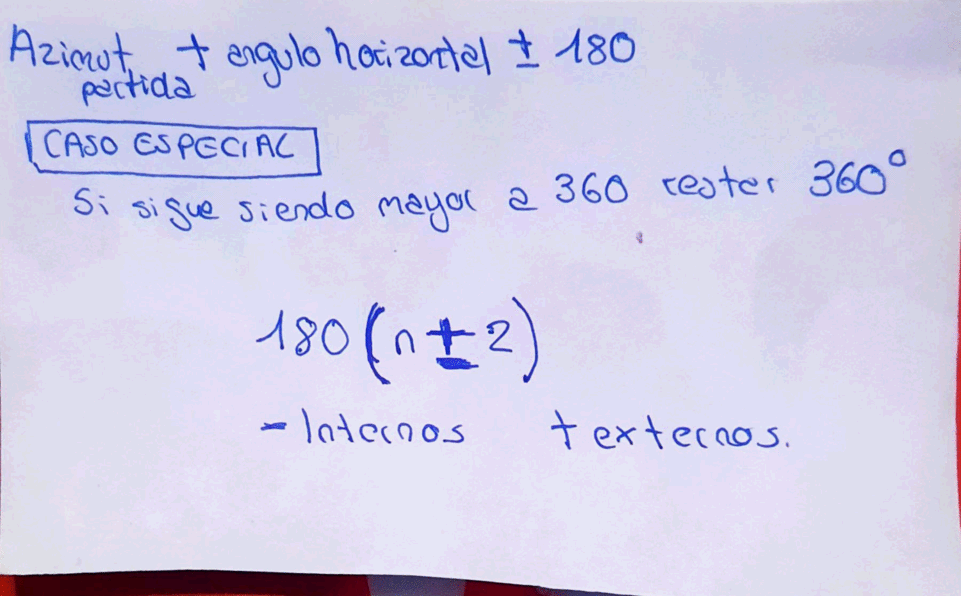 Azimut + angulo horizontal ± 180
partida
CASO ESPECIAL
Si sigue siendo mayor a 360 restar 360°
180 (n ± 2)
- Internos + externos.